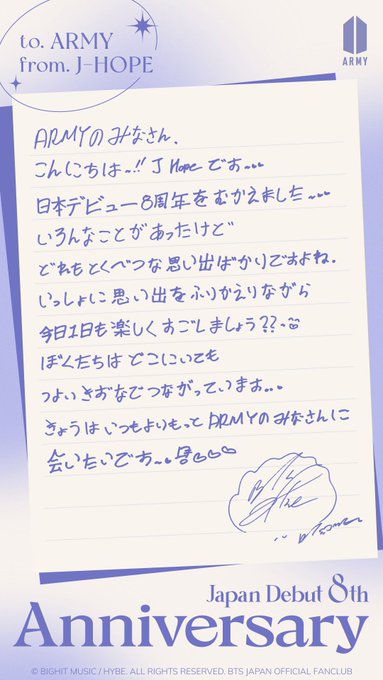 to. ARMY
from. J-HOPE
ARMY
ARMYのみなさん、
こんにちは~!! J Hope です...
日本デビュー8周年をむかえました~~
いろんなことがあったけど
どれもとくべつな思い出ばかりですよね.
いっしょに思い出をふりかえりながら
今日1日も楽しくすごしましょう??
ぼくたちはどこにいても
つよいきずなでつながっています...
きょうはいつもよりもっとARMYのみなさんに
会いたいです
BTS
Japan Debut 8th
Anniversary
© BIGHIT MUSIC / HYBE. ALL RIGHTS RESERVED. BTS JAPAN OFFICIAL FANCLUB